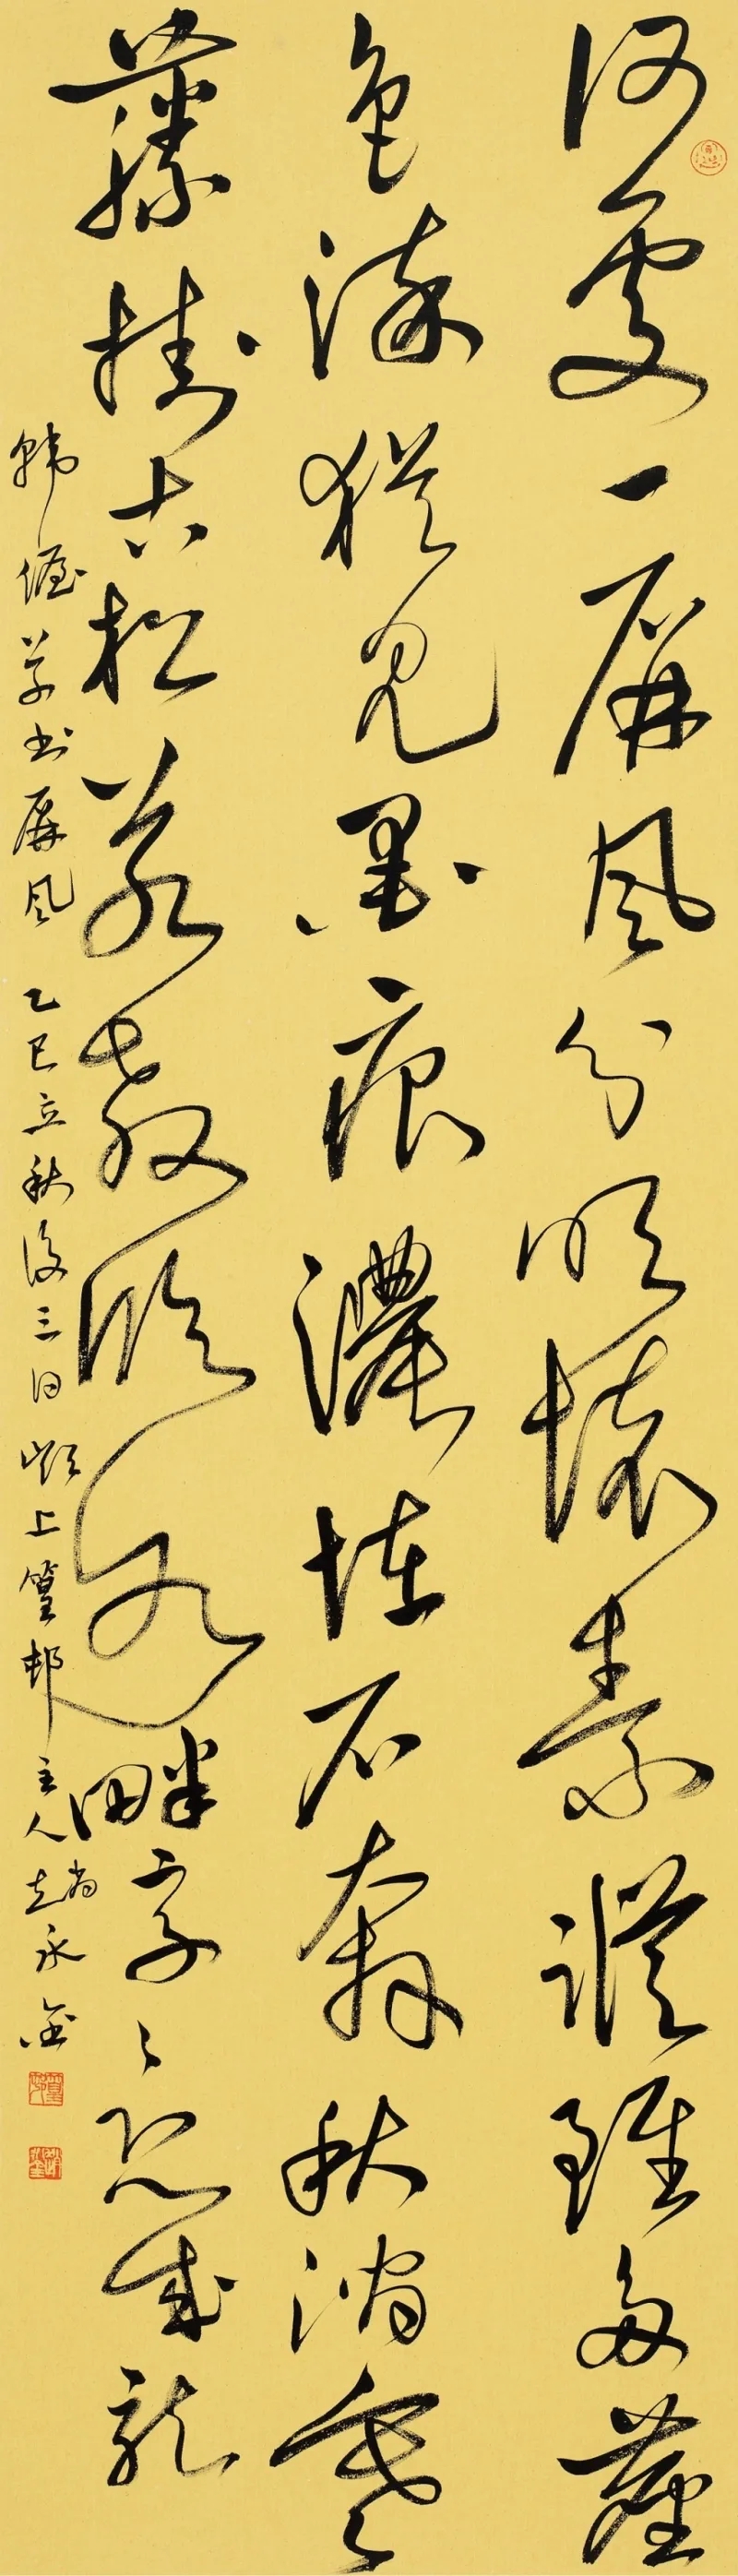 何處一屏風分明懷素蹤雖多塵
色染猶見墨痕濃怪石奔秋澗寒
藤掛古松若教臨水畔字々恐成龍
韓偓草書屏風 乙巳立秋後三日 上篁邨主人趙永金